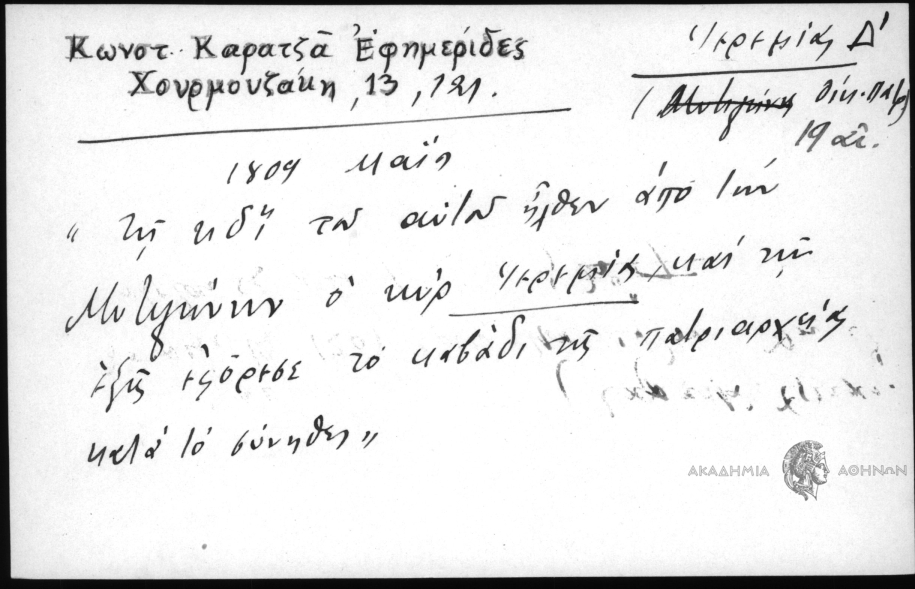 Κωνστ. Καρατζᾶ Ἐφημερίδες
Χουρμουζάκη, 13, 121.
Ἱερεμίας Δ'
(Μυτιλήνης Οἰκ. πατρ)
19 αἰ.
1809 Μαΐῳ
"τῇ κδῃ τοῦ αὐτοῦ ἦλθεν ἀπό τήν
Μυτιλήνην ὁ κύρ Ἱερεμίας, καί τῇ
ἑξῆς ἐφόρεσε τό καβάδι τῆς πατριαρχείας
κατά τό σύνηθες"
ΑΚΑΔΗΜΙΑ ΑΘΗΝΩΝ